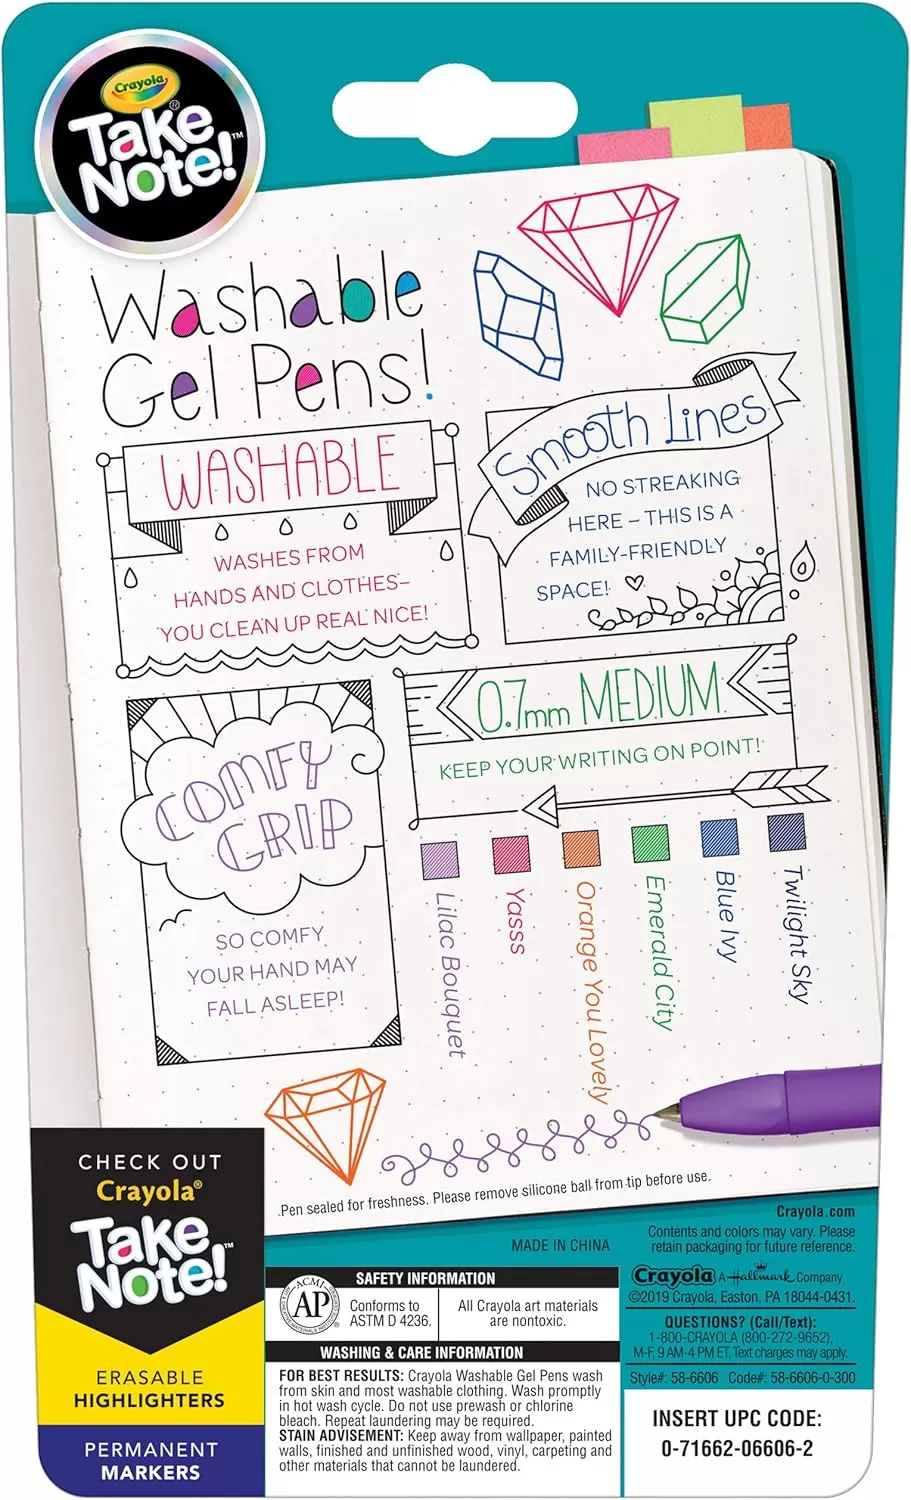 Crayola
Take
Note!™
Washable
Gel Pens!
WASHABLE
WASHES FROM
HANDS AND CLOTHES–
YOU CLEAN UP REAL NICE!
Smooth Lines
NO STREAKING
HERE – THIS IS A
FAMILY-FRIENDLY
SPACE!
COMFY
GRIP
SO COMFY
YOUR HAND MAY
FALL ASLEEP!
0.7mm MEDIUM
KEEP YOUR WRITING ON POINT!
Lilac Bouquet
Yasss
Orange You Lovely
Emerald City
Blue Ivy
Twilight Sky
Pen sealed for freshness. Please remove silicone ball from tip before use.
CHECK OUT
Crayola®
Take
Note!™
ERASABLE
HIGHLIGHTERS
PERMANENT
MARKERS
MADE IN CHINA
SAFETY INFORMATION
ACMI
AP
Conforms to
ASTM D 4236.
All Crayola art materials
are nontoxic.
WASHING & CARE INFORMATION
FOR BEST RESULTS: Crayola Washable Gel Pens wash
from skin and most washable clothing. Wash promptly
in hot wash cycle. Do not use prewash or chlorine
bleach. Repeat laundering may be required.
STAIN ADVISEMENT: Keep away from wallpaper, painted
walls, finished and unfinished wood, vinyl, carpeting and
other materials that cannot be laundered.
Crayola.com
Contents and colors may vary. Please
retain packaging for future reference.
Crayola A Hallmark Company
©2019 Crayola, Easton, PA 18044-0431.
QUESTIONS? (Call/Text):
1-800-CRAYOLA (800-272-9652),
M-F, 9 AM-4 PM ET. Text charges may apply.
Style#: 58-6606 Code#: 58-6606-0-300
INSERT UPC CODE:
0-71662-06606-2